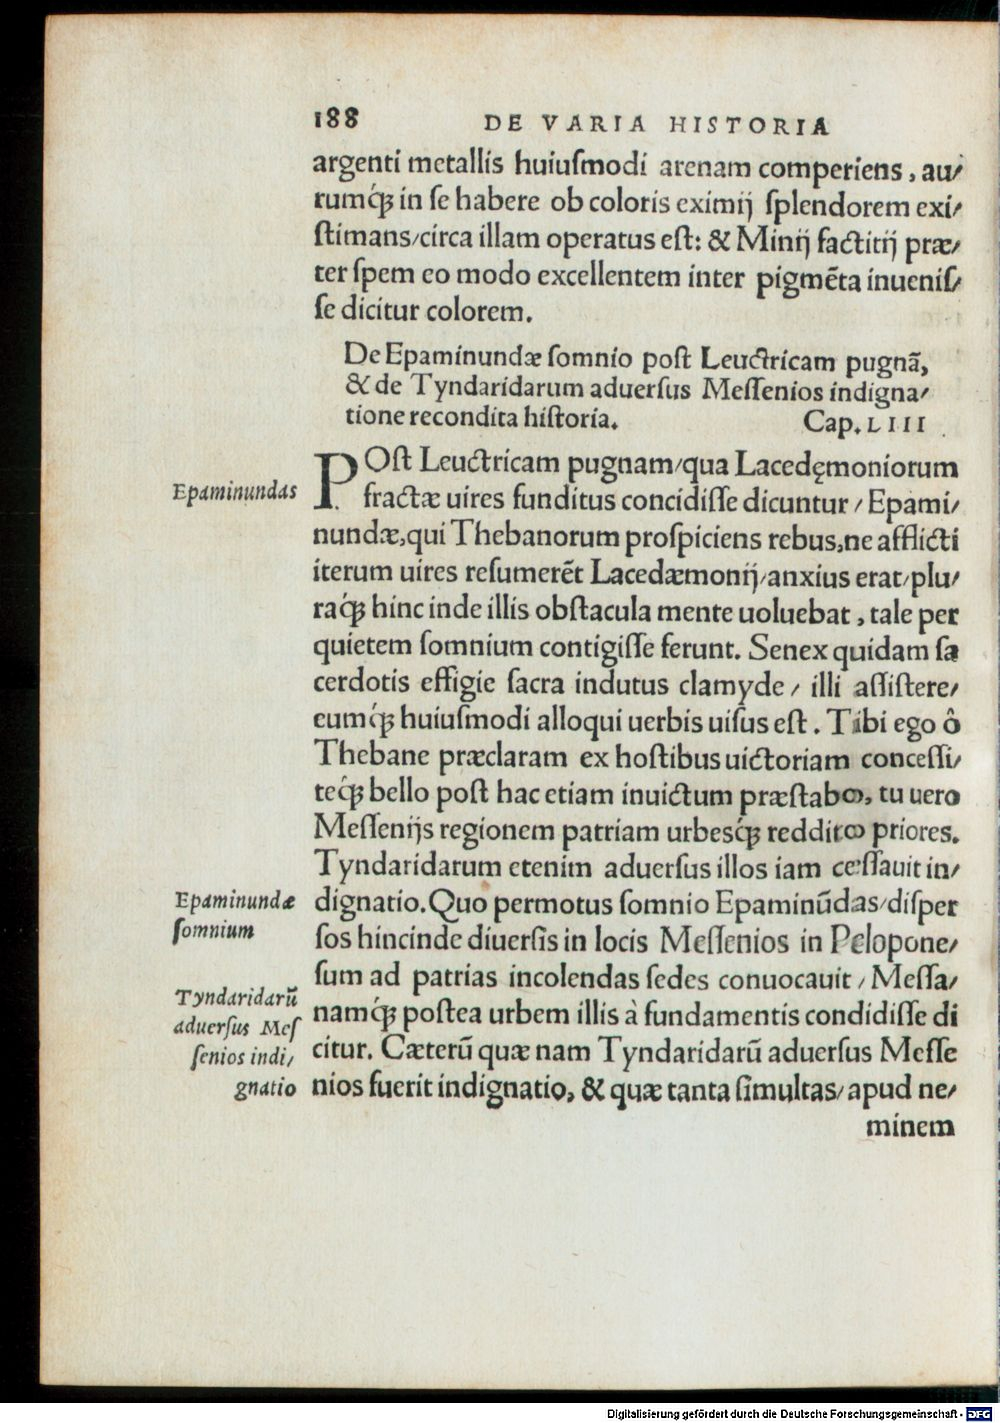 188 DE VARIA HISTORIA
argenti metallis huiuſmodi arenam comperiens, au/
rumq́ꝫ in ſe habere ob coloris eximij ſplendorem exi/
ſtimans/circa illam operatus eſt: & Minij factitij præ/
ter ſpem eo modo excellentem inter pigmẽta inueniſ/
ſe dicitur colorem.
De Epaminundæ ſomnio poſt Leuctricam pugnã,
& de Tyndaridarum aduerſus Meſſenios indigna/
tione recondita hiſtoria. Cap. LIII.
POſt Leuctricam pugnam/qua Lacedęmoniorum
fractæ uires funditus concidiſſe dicuntur / Epami/
nundæ,qui Thebanorum proſpiciens rebus,ne afflicti
iterum uires reſumerẽt Lacedæmonij/anxius erat/plu/
raq́ꝫ hinc inde illis obſtacula mente uoluebat, tale per
quietem ſomnium contigiſſe ferunt. Senex quidam ſa
cerdotis effigie ſacra indutus clamyde / illi aſſiſtere/
eumq́ꝫ huiuſmodi alloqui uerbis uiſus eſt. Tibi ego ô
Thebane præclaram ex hoſtibus uictoriam conceſſi/
teq́ꝫ bello poſt hac etiam inuictum præſtabo, tu uero
Meſſenijs regionem patriam urbesq́ꝫ reddito priores.
Tyndaridarum etenim aduerſus illos iam ceſſauit in/
dignatio. Quo permotus ſomnio Epaminũdas/diſper
ſos hincinde diuerſis in locis Meſſenios in Pelopone/
ſum ad patrias incolendas ſedes conuocauit / Meſſa/
namq́ꝫ poſtea urbem illis à fundamentis condidiſſe di
citur. Cæterũ quæ nam Tyndaridarũ aduerſus Meſſe
nios fuerit indignatio, & quæ tanta ſimultas/apud ne/
minem
Epaminundas
Epaminundæ
ſomnium
Tyndaridarũ
aduerſus Meſ
ſenios indi/
gnatio
Digitalisierung gefördert durch die Deutsche Forschungsgemeinschaft - DFG